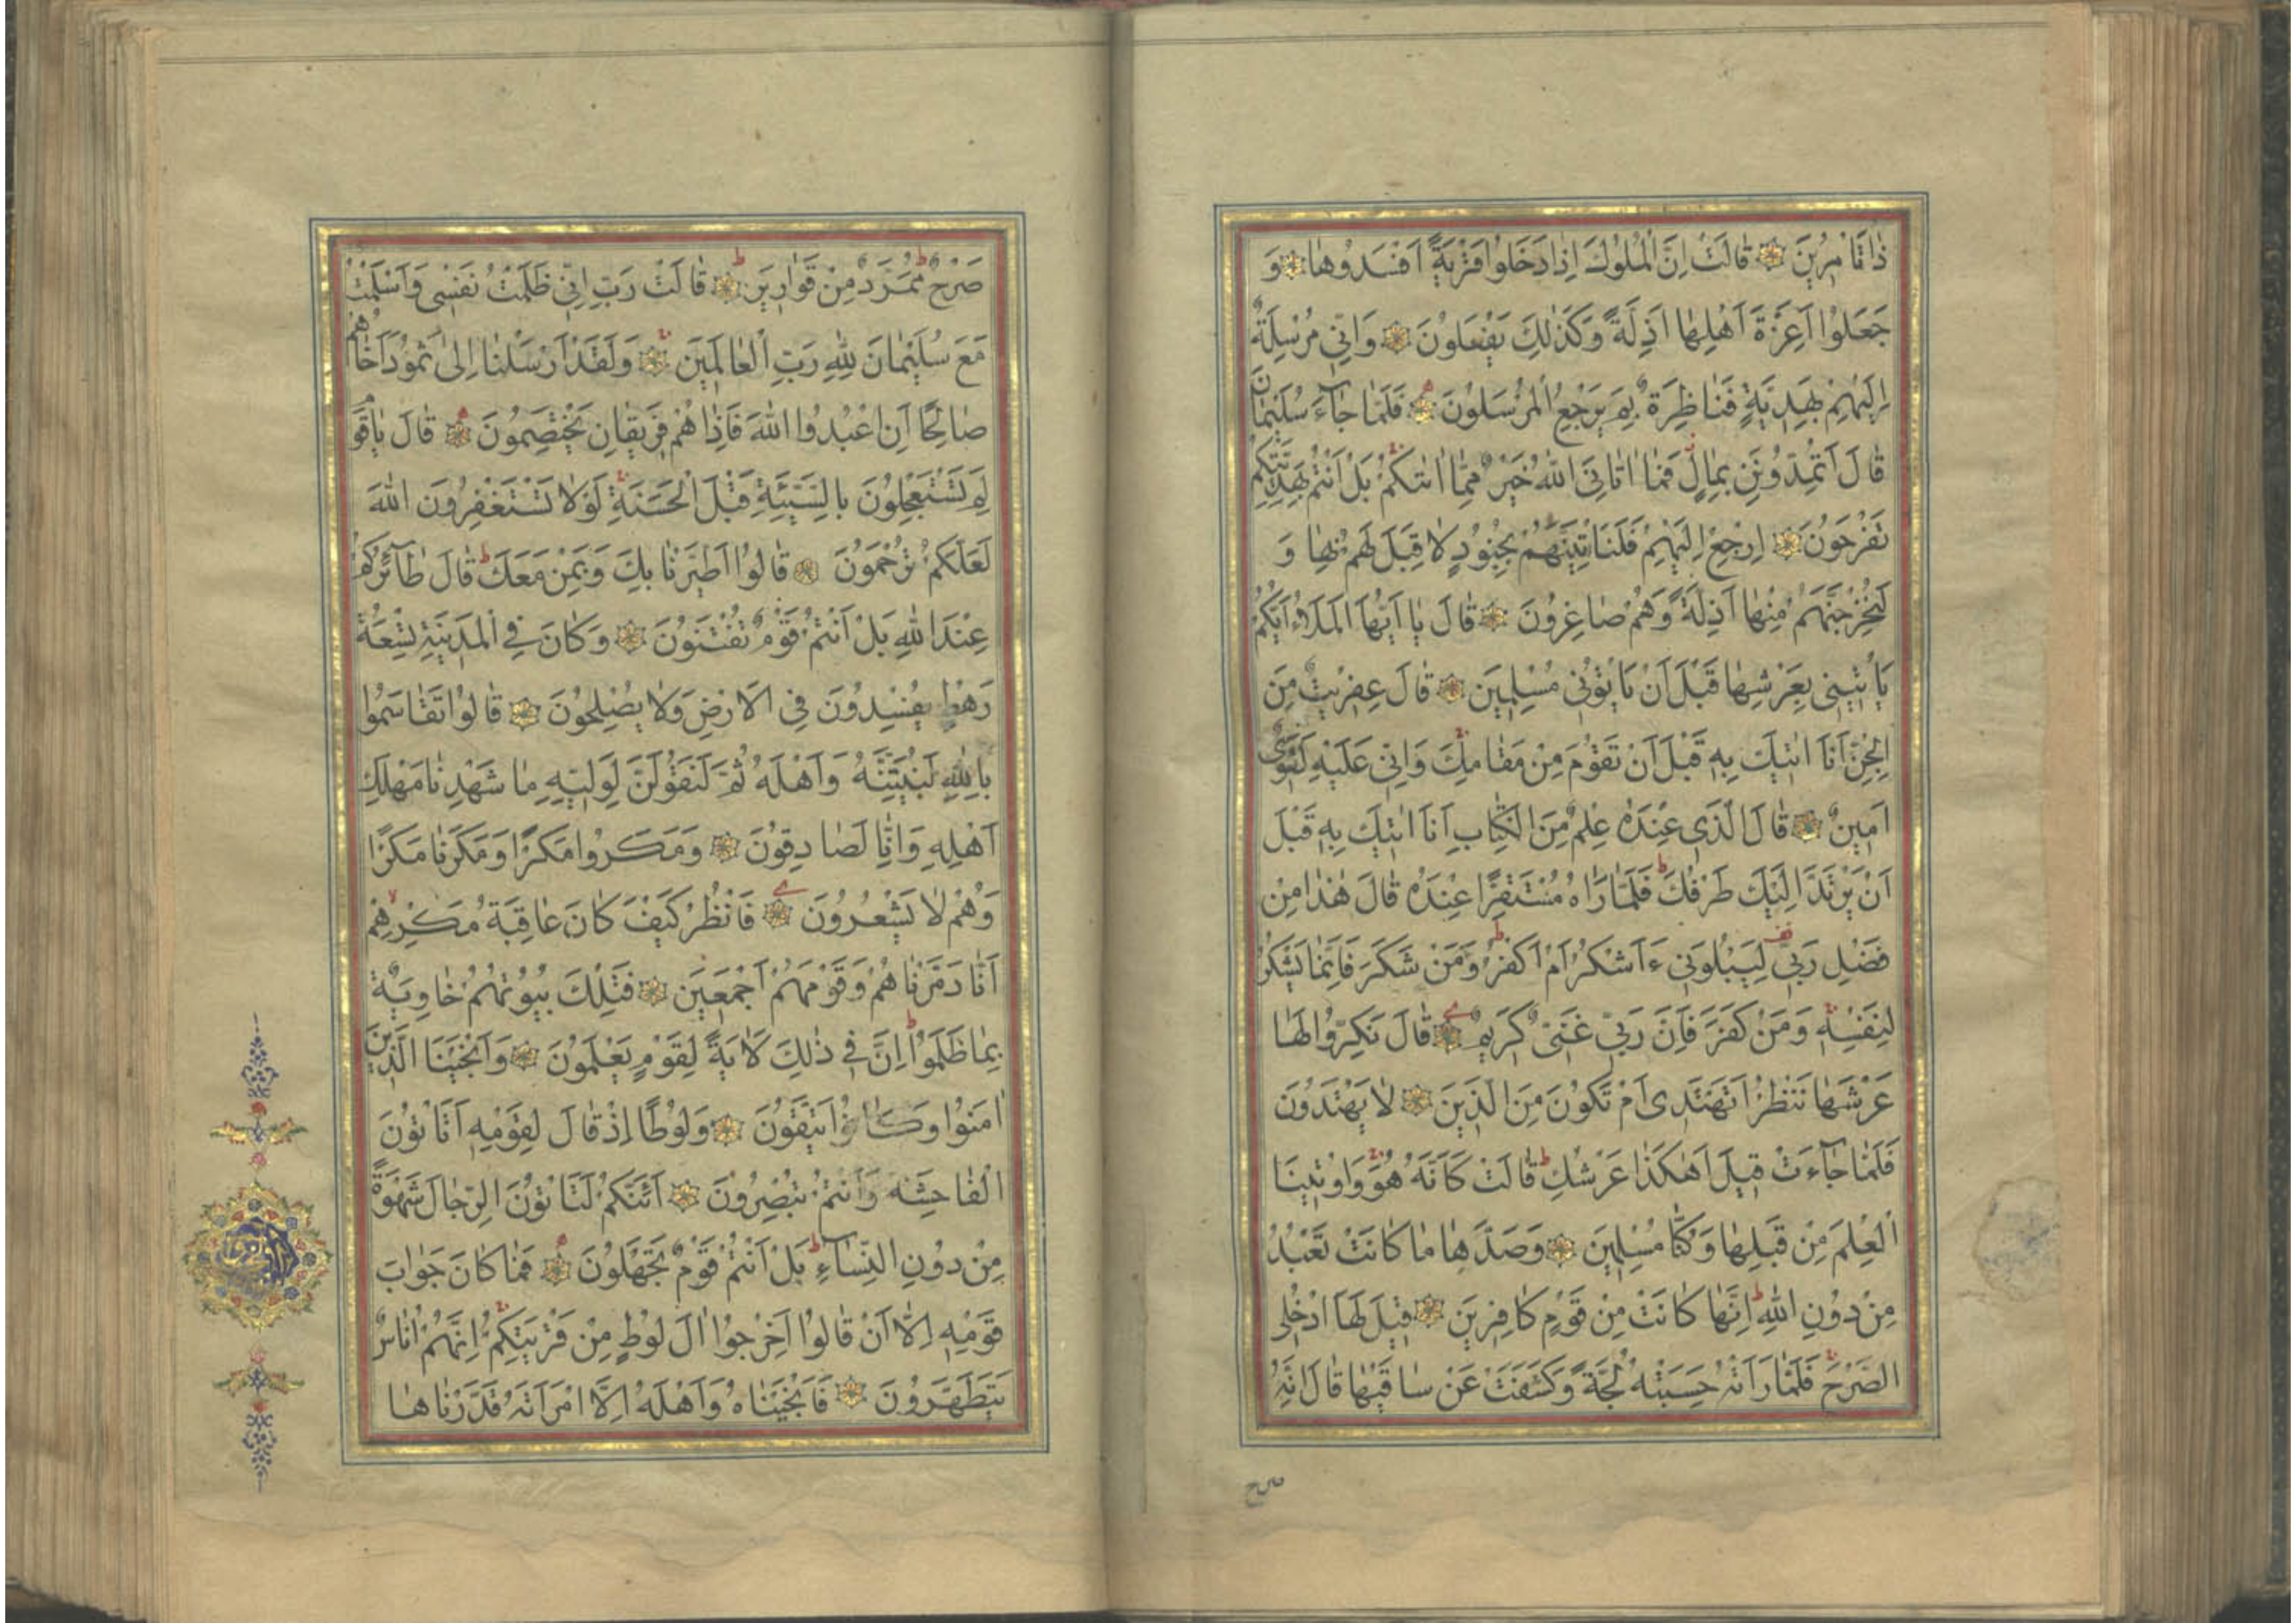 ذَا تَأْمُرِينَ قَالَتْ اِنَّ الْمُلُوكَ اِذَا دَخَلُوا قَرْيَةً اَفْسَدُوهَا وَ
جَعَلُوا اَعِزَّةَ اَهْلِهَا اَذِلَّةً وَكَذٰلِكَ يَفْعَلُونَ وَاِنّي مُرْسِلَةٌ
اِلَيْهِمْ بِهَدِيَّةٍ فَنَاظِرَةٌ بِمَ يَرْجِعُ الْمُرْسَلُونَ فَلَمَّا جَآءَ سُلَيْمَانَ
قَالَ اَتُمِدُّونَنِ بِمَالٍ فَمَا اٰتَانِيَ اللّٰهُ خَيْرٌ مِمَّا اٰتٰيكُمْ بَلْ اَنْتُمْ بِهَدِيَّتِكُمْ
تَفْرَحُونَ اِرْجِعْ اِلَيْهِمْ فَلَنَأْتِيَنَّهُمْ بِجُنُودٍ لَا قِبَلَ لَهُمْ بِهَا وَ
لَنُخْرِجَنَّهُمْ مِنْهَا اَذِلَّةً وَهُمْ صَاغِرُونَ قَالَ يَا اَيُّهَا الْمَلَؤُا اَيُّكُمْ
يَأْتِينِي بِعَرْشِهَا قَبْلَ اَنْ يَأْتُونِي مُسْلِمِينَ قَالَ عِفْرِيتٌ مِنَ
الْجِنِّ اَنَا اٰتِيكَ بِهِ قَبْلَ اَنْ تَقُومَ مِنْ مَقَامِكَ وَاِنّي عَلَيْهِ لَقَوِيٌّ
اَمِينٌ قَالَ الَّذِي عِنْدَهُ عِلْمٌ مِنَ الْكِتَابِ اَنَا اٰتِيكَ بِهِ قَبْلَ
اَنْ يَرْتَدَّ اِلَيْكَ طَرْفُكَ فَلَمَّا رَاٰهُ مُسْتَقِرًّا عِنْدَهُ قَالَ هٰذَا مِنْ
فَضْلِ رَبّي لِيَبْلُوَنِي ءَاَشْكُرُ اَمْ اَكْفُرُ وَمَنْ شَكَرَ فَاِنَّمَا يَشْكُرُ
لِنَفْسِهِ وَمَنْ كَفَرَ فَاِنَّ رَبّي غَنِيٌّ كَرِيمٌ قَالَ نَكِّرُوا لَهَا
عَرْشَهَا نَنْظُرْ اَتَهْتَدِي اَمْ تَكُونُ مِنَ الَّذِينَ لَا يَهْتَدُونَ
فَلَمَّا جَآءَتْ قِيلَ اَهٰكَذَا عَرْشُكِ قَالَتْ كَاَنَّهُ هُوَ وَاُوتِينَا
الْعِلْمَ مِنْ قَبْلِهَا وَكُنَّا مُسْلِمِينَ وَصَدَّهَا مَا كَانَتْ تَعْبُدُ
مِنْ دُونِ اللّٰهِ اِنَّهَا كَانَتْ مِنْ قَوْمٍ كَافِرِينَ قِيلَ لَهَا ادْخُلِي
الصَّرْحَ فَلَمَّا رَاَتْهُ حَسِبَتْهُ لُجَّةً وَكَشَفَتْ عَنْ سَاقَيْهَا قَالَ اِنَّهُ
صرح
صَرْحٌ مُمَرَّدٌ مِنْ قَوَارِيرَ قَالَتْ رَبِّ اِنّي ظَلَمْتُ نَفْسِي وَاَسْلَمْتُ
مَعَ سُلَيْمَانَ لِلّٰهِ رَبِّ الْعَالَمِينَ وَلَقَدْ اَرْسَلْنَا اِلٰى ثَمُودَ اَخَاهُمْ
صَالِحًا اَنِ اعْبُدُوا اللّٰهَ فَاِذَا هُمْ فَرِيقَانِ يَخْتَصِمُونَ قَالَ يَا قَوْمِ
لِمَ تَسْتَعْجِلُونَ بِالسَّيِّئَةِ قَبْلَ الْحَسَنَةِ لَوْلَا تَسْتَغْفِرُونَ اللّٰهَ
لَعَلَّكُمْ تُرْحَمُونَ قَالُوا اطَّيَّرْنَا بِكَ وَبِمَنْ مَعَكَ قَالَ طَآئِرُكُمْ
عِنْدَ اللّٰهِ بَلْ اَنْتُمْ قَوْمٌ تُفْتَنُونَ وَكَانَ فِي الْمَدِينَةِ تِسْعَةُ
رَهْطٍ يُفْسِدُونَ فِي الْاَرْضِ وَلَا يُصْلِحُونَ قَالُوا تَقَاسَمُوا
بِاللّٰهِ لَنُبَيِّتَنَّهُ وَاَهْلَهُ ثُمَّ لَنَقُولَنَّ لِوَلِيِّهِ مَا شَهِدْنَا مَهْلِكَ
اَهْلِهِ وَاِنَّا لَصَادِقُونَ وَمَكَرُوا مَكْرًا وَمَكَرْنَا مَكْرًا
وَهُمْ لَا يَشْعُرُونَ فَانْظُرْ كَيْفَ كَانَ عَاقِبَةُ مَكْرِهِمْ
اَنَّا دَمَّرْنَاهُمْ وَقَوْمَهُمْ اَجْمَعِينَ فَتِلْكَ بُيُوتُهُمْ خَاوِيَةً
بِمَا ظَلَمُوا اِنَّ فِي ذٰلِكَ لَاٰيَةً لِقَوْمٍ يَعْلَمُونَ وَاَنْجَيْنَا الَّذِينَ
اٰمَنُوا وَكَانُوا يَتَّقُونَ وَلُوطًا اِذْ قَالَ لِقَوْمِهِ اَتَأْتُونَ
الْفَاحِشَةَ وَاَنْتُمْ تُبْصِرُونَ اَئِنَّكُمْ لَتَأْتُونَ الرِّجَالَ شَهْوَةً
مِنْ دُونِ النِّسَآءِ بَلْ اَنْتُمْ قَوْمٌ تَجْهَلُونَ فَمَا كَانَ جَوَابَ
قَوْمِهِ اِلَّا اَنْ قَالُوا اَخْرِجُوا اٰلَ لُوطٍ مِنْ قَرْيَتِكُمْ اِنَّهُمْ اُنَاسٌ
يَتَطَهَّرُونَ فَاَنْجَيْنَاهُ وَاَهْلَهُ اِلَّا امْرَاَتَهُ قَدَّرْنَاهَا